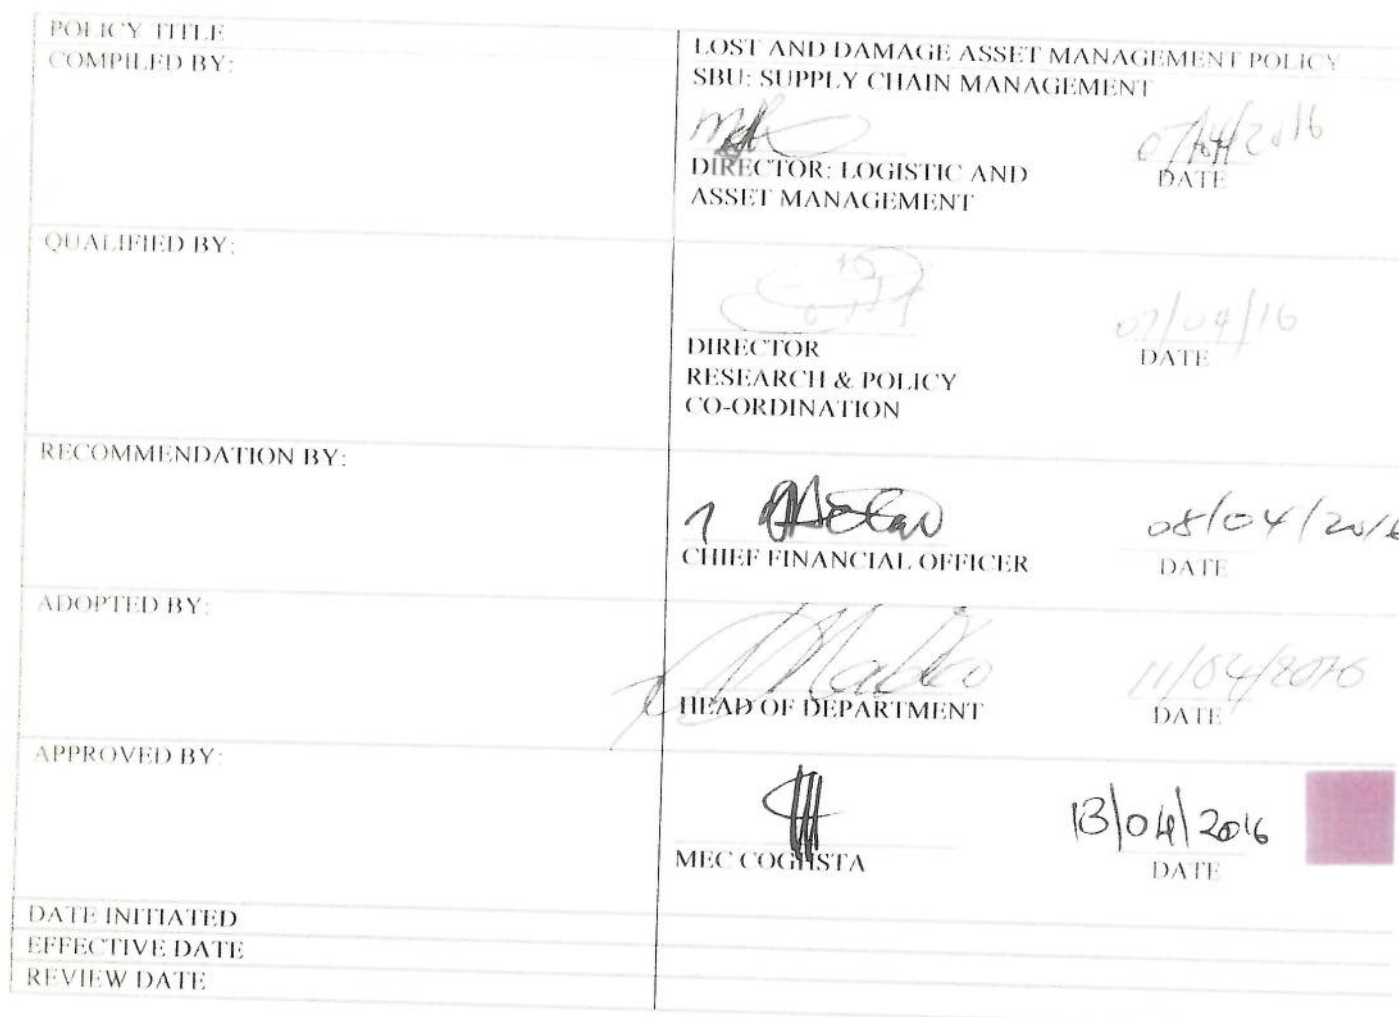 POLICY TITLE
LOST AND DAMAGE ASSET MANAGEMENT POLICY
COMPILED BY:
SBU: SUPPLY CHAIN MANAGEMENT
07/04/2016
DIRECTOR: LOGISTIC AND
ASSET MANAGEMENT
DATE
QUALIFIED BY:
07/04/16
DIRECTOR
RESEARCH & POLICY
CO-ORDINATION
DATE
RECOMMENDATION BY:
08/04/2016
CHIEF FINANCIAL OFFICER
DATE
ADOPTED BY:
11/04/2016
HEAD OF DEPARTMENT
DATE
APPROVED BY:
13/04/2016
MEC COGHSTA
DATE
DATE INITIATED
EFFECTIVE DATE
REVIEW DATE